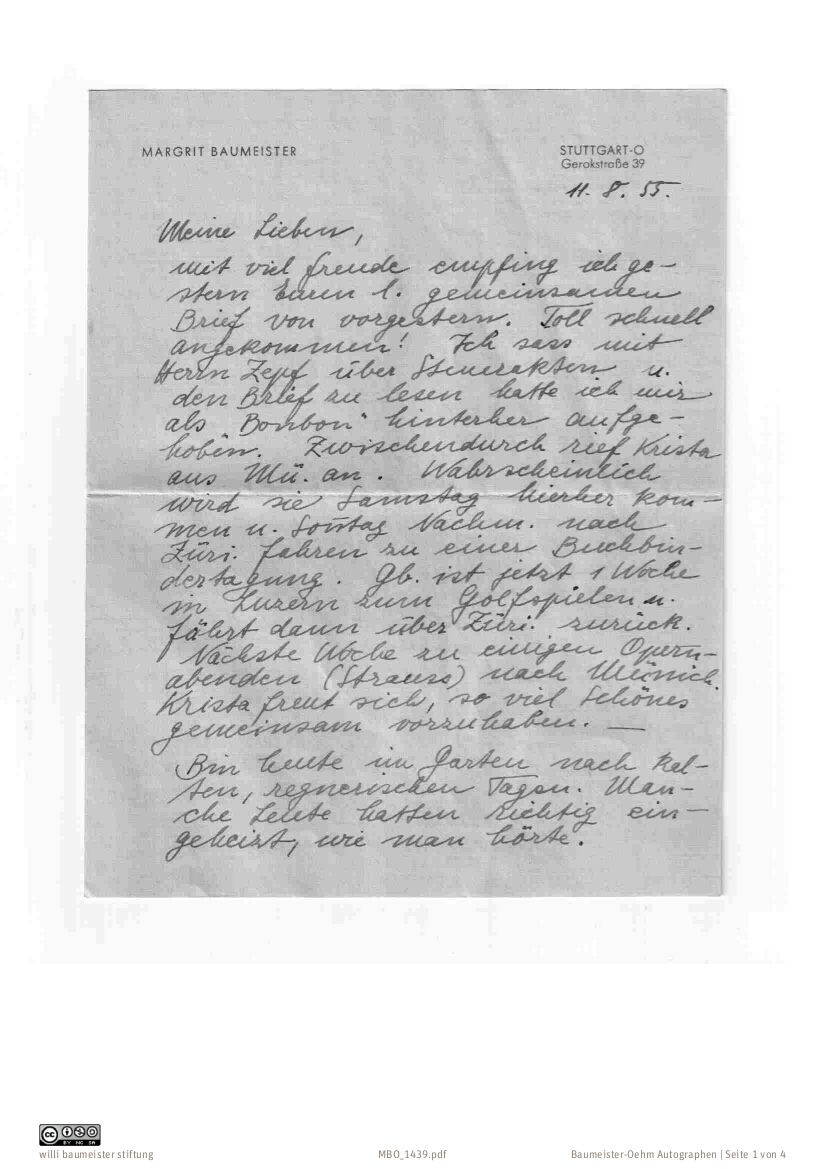 MARGRIT BAUMEISTER
STUTTGART-O
Gerokstraße 39
11. 8. 55.
Meine Lieben,
mit viel Freude empfing ich ge-
stern Euren l. gemeinsamen
Brief von vorgestern. Toll schnell
angekommen! Ich sass mit
Herrn Zepf über Steuerakten u.
den Brief zu lesen hatte ich mir
als "Bonbon" hinterher aufge-
hoben. Zwischendurch rief Krista
aus Mü. an. Wahrscheinlich
wird sie Samstag hierher kom-
men u. Sonntag Nachm. nach
Züri. fahren zu einer Buchbin-
dertagung. Gb. ist jetzt 1 Woche
in Luzern zum Golfspielen u.
fährt dann über Züri. zurück.
Nächste Woche zu einigen Opern-
abenden (Strauss) nach Münich.
Krista freut sich, so viel Schönes
gemeinsam vorzuhaben. —
Bin heute im Garten nach kal-
ten, regnerischen Tagen. Man-
che Leute hatten richtig ein-
geheizt, wie man hörte.
CC BY NC SA
willi baumeister stiftung
MBO_1439.pdf
Baumeister-Oehm Autographen | Seite 1 von 4